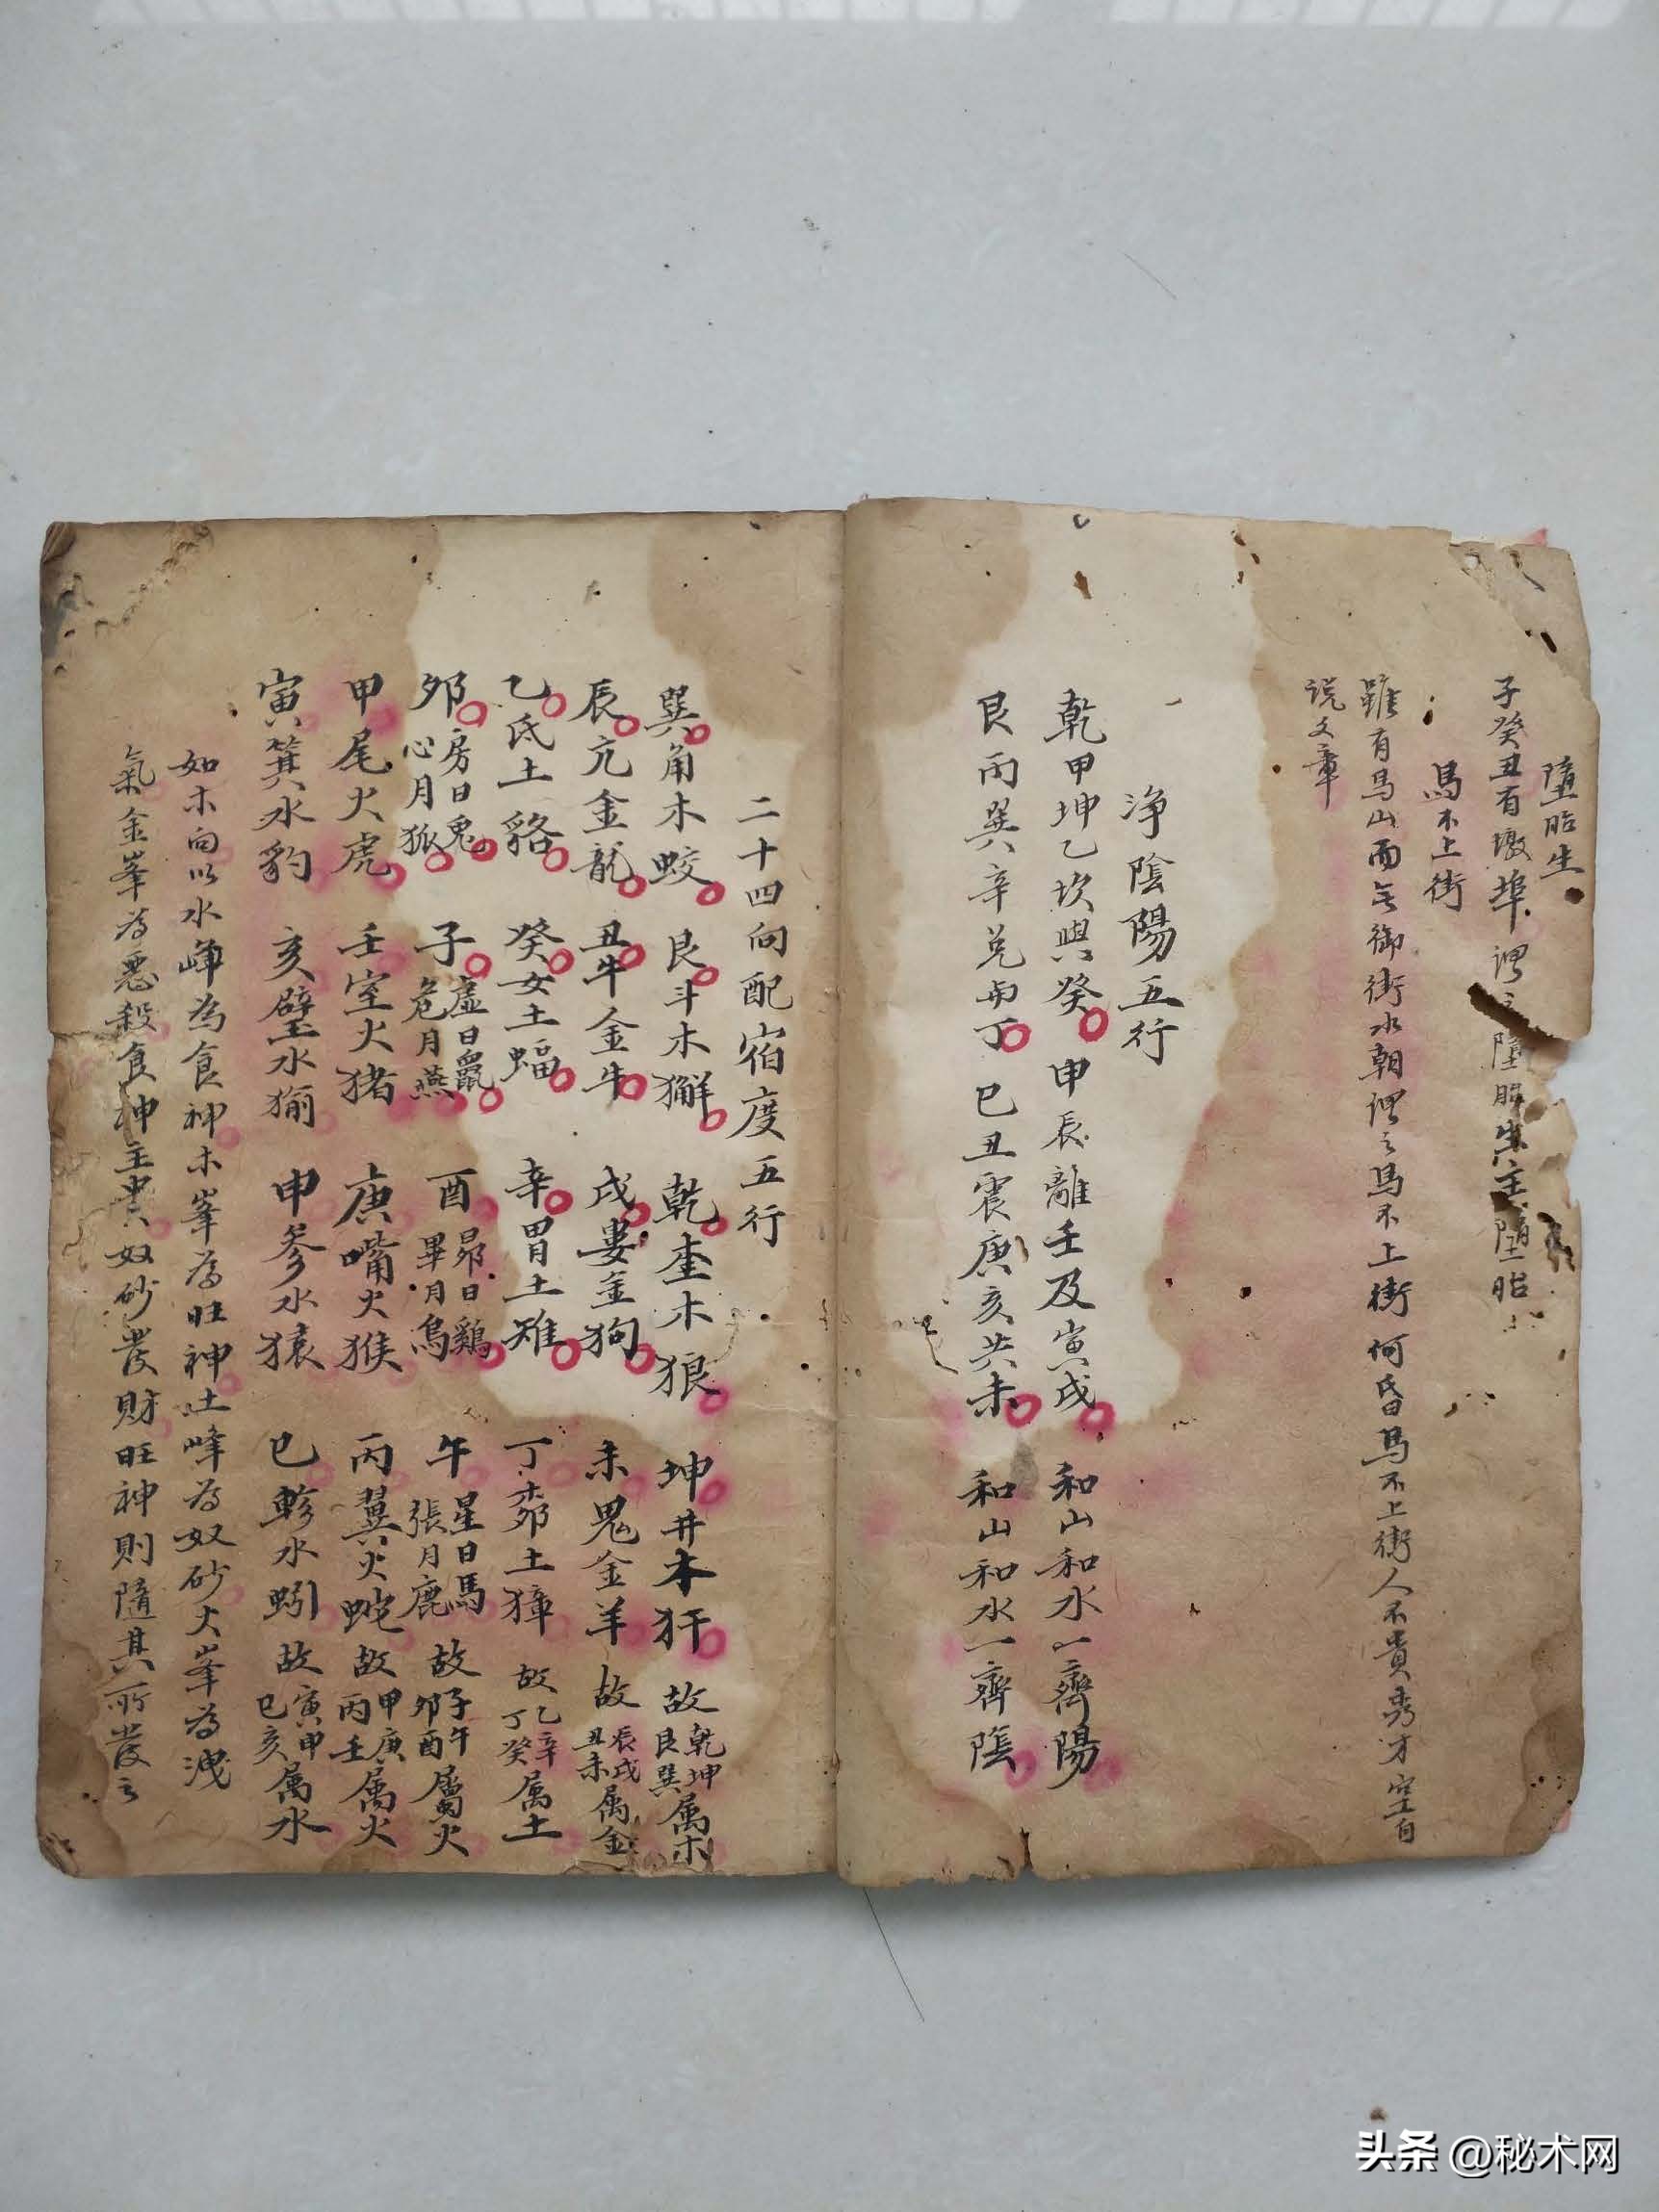 墮胎生
子癸丑有墩埠謂之墮胎生主墮胎
馬不上街
雖有馬山而無御街水朝謂之馬不上街何㫪馬不上街人不貴秀才空自
說文章
净陰陽五行
乾甲坤乙坎與癸申辰離壬及寅戌和山和水一齊陽
艮丙巽辛兌與丁巳丑震庚亥共未和山和水一齊陰
二十四向配宿度五行
巽角木蛟艮斗木獬乾奎木狼坤井木犴故乾坤艮巽属木
辰亢金龍丑牛金牛戌婁金狗未鬼金羊故辰戌丑未属金
乙氐土貉癸女土蝠辛胃土雉丁柳土獐故乙辛丁癸属土
夘房日兔心月狐子虛日鼠危月燕酉昴日鷄畢月烏午星日馬張月鹿故子午夘酉屬火
甲尾火虎壬室火猪庚嘴火猴丙翼火蛇故甲庚丙壬属火
寅箕水豹亥壁水㺄申參水猿巳軫水蚓故寅申巳亥属水
如木向以水峰為食神木峯為旺神土峰為奴砂火峯為洩
氣金峯為惡殺食神主貴奴砂發財旺神則隨其所發之
头条 @秘术网